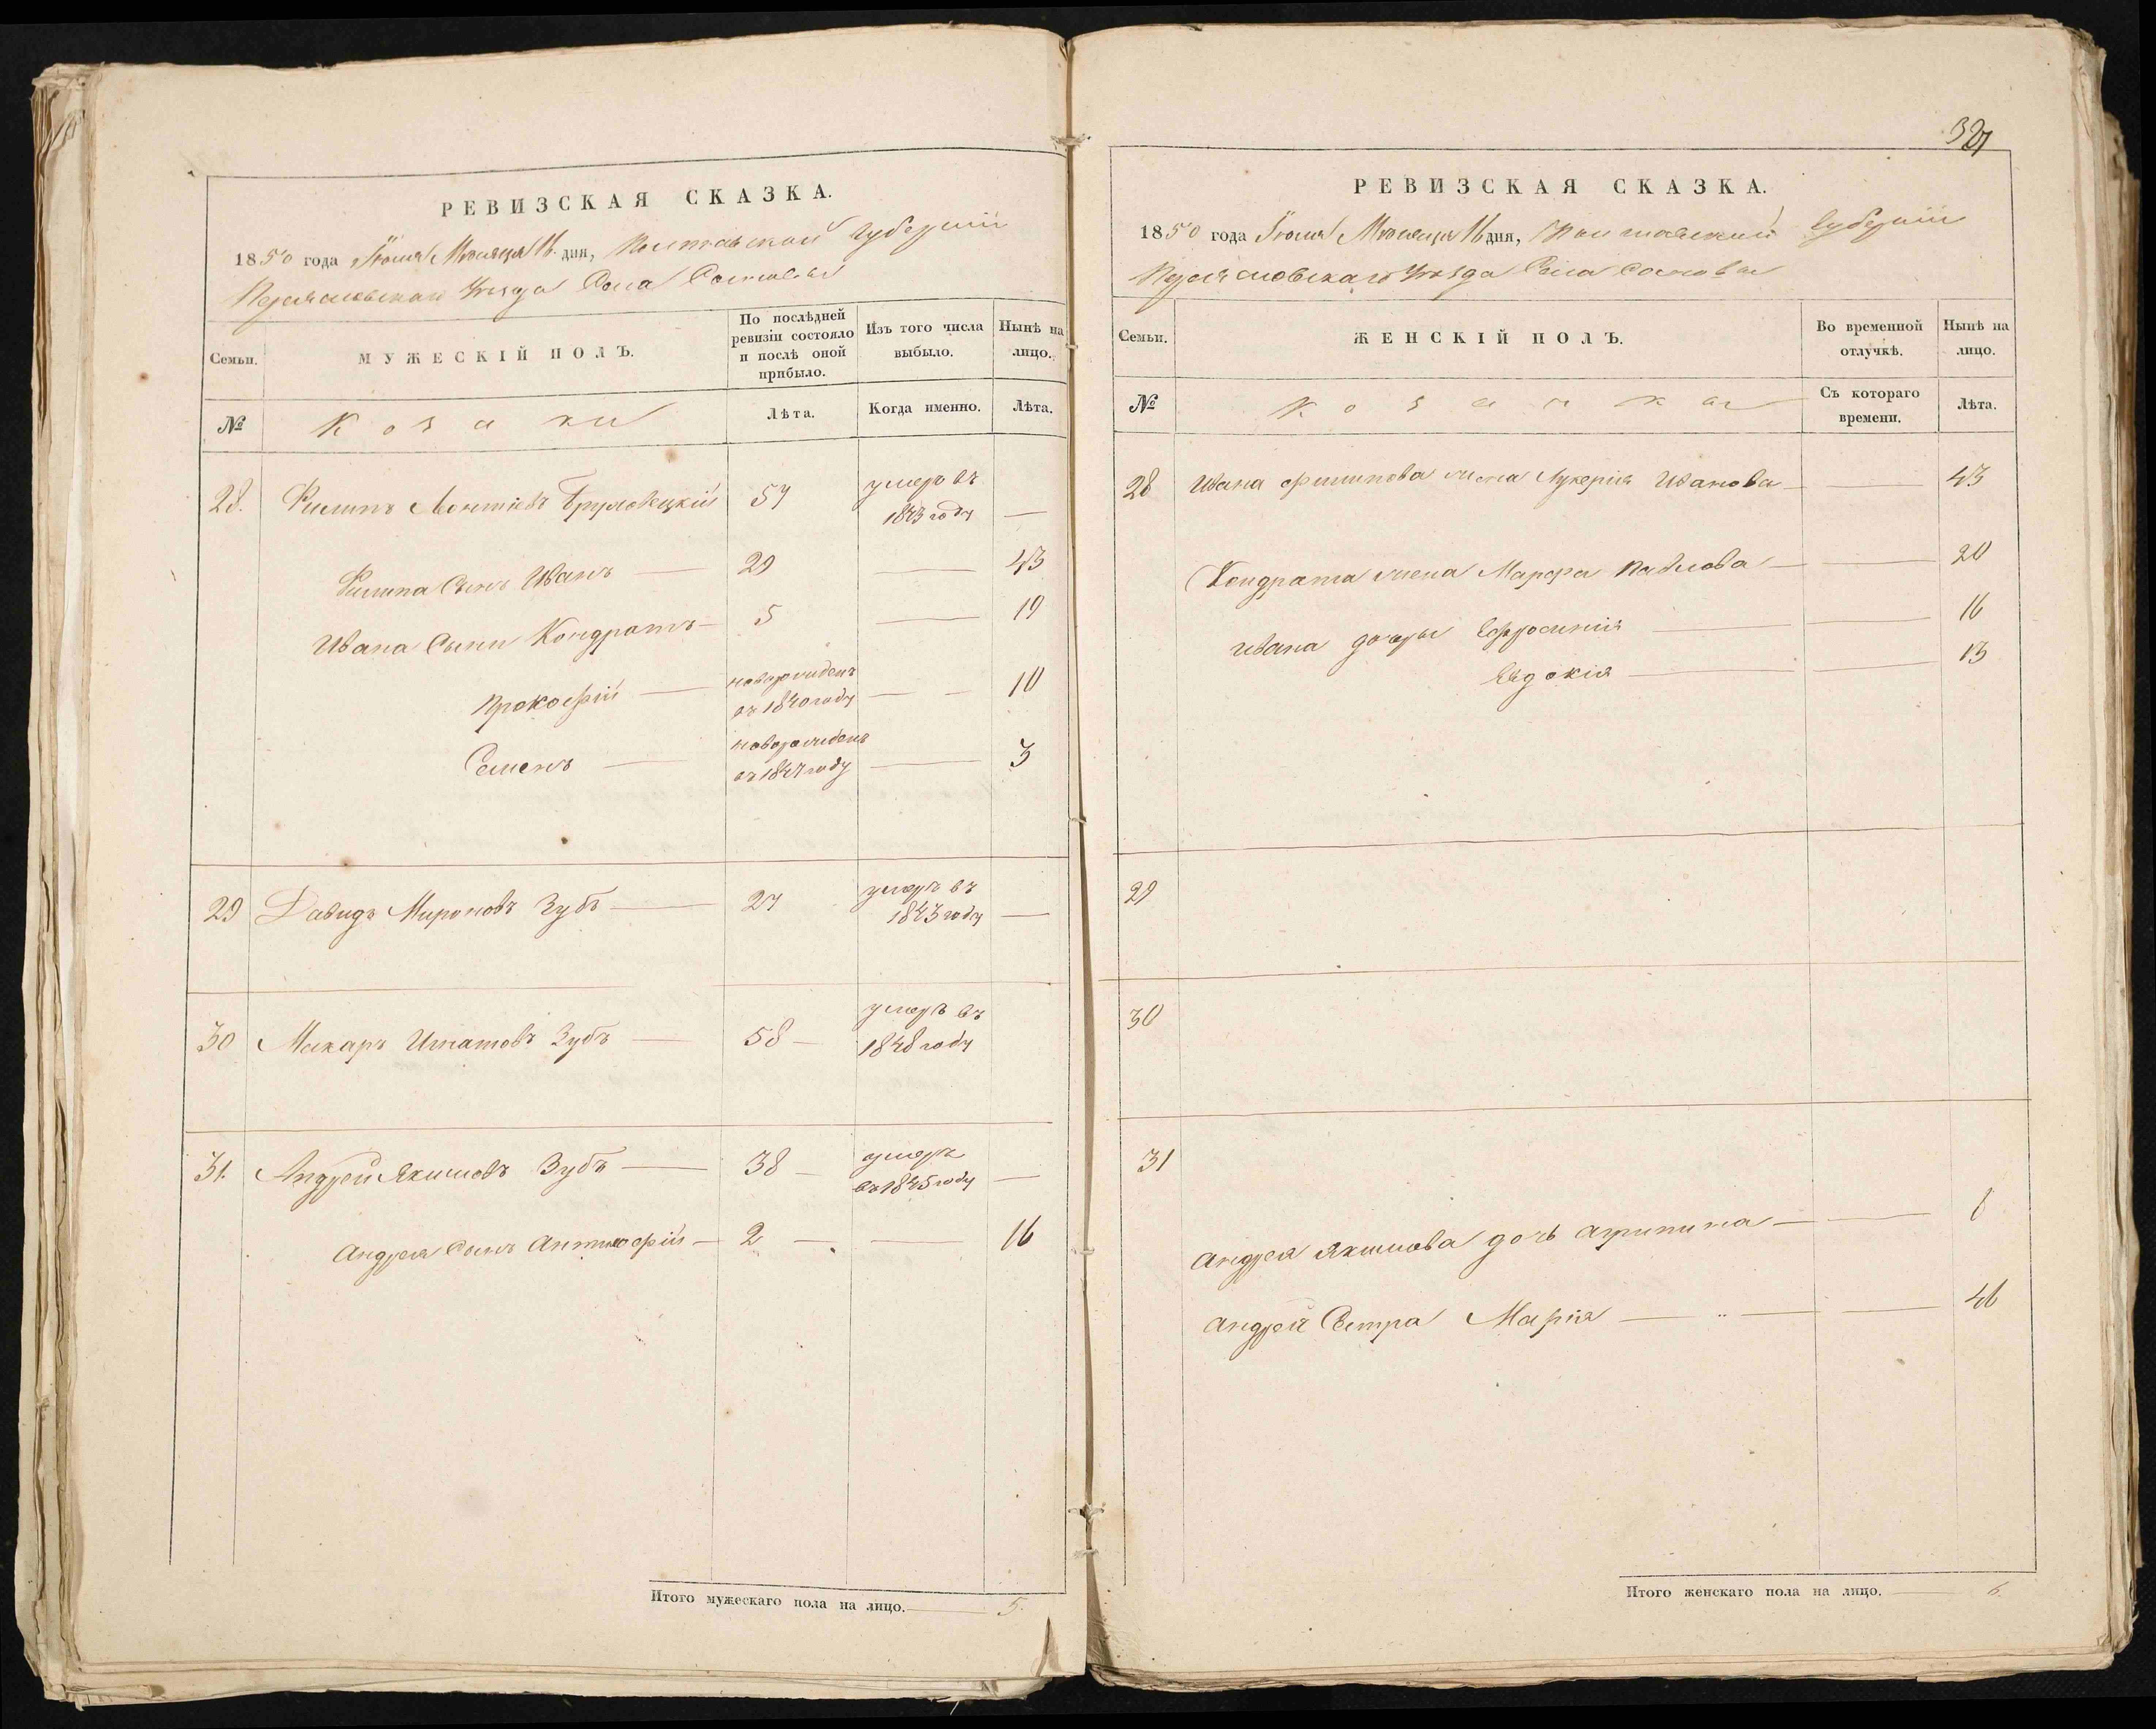 РЕВИЗСКАЯ СКАЗКА.
1850 года Іюля Мѣсяца 16 дня, Полтавской Губерніи
Переяславскаго Уѣзда Села Сосновы
Семьи.
МУЖЕСКІЙ ПОЛЪ.
По послѣдней ревизіи состояло и послѣ оной прибыло.
Изъ того числа выбыло.
Нынѣ на лицо.
№
Козаки
Лѣта.
Когда именно.
Лѣта.
28. Филипъ Леонтіевъ 57 умеръ въ 1843 году —
Филипа Сынъ Иванъ — 29 — 43
Ивана Сыни Кондратъ — 5 — 19
Прокофій — новорожденъ въ 1840 году — 10
Семенъ — новорожденъ въ 1847 году — 3
29 Давидъ Мироновъ Зубъ — 27 умеръ въ 1843 году —
30 Макаръ Игнатовъ Зубъ — 58 — умеръ въ 1848 году
31. Андрей Якимовъ Зубъ — 38 — умеръ въ 1845 году —
Андрея Сынъ — 2 — — 16
Итого мужескаго пола на лицо. — 5.
РЕВИЗСКАЯ СКАЗКА.
1850 года Іюля Мѣсяца 16 дня, Полтавской Губерніи
Переяславскаго Уѣзда Села Сосновы
Семьи.
ЖЕНСКІЙ ПОЛЪ.
Во временной отлучкѣ.
Нынѣ на лицо.
№
Козачки
Съ котораго времени.
Лѣта.
28 Ивана Филипова жена Лукерія Иванова — — 43
Кондрата жена Марфа Павлова — — 20
Ивана дочери Ефросинія — — 16
Евдокія — — 13
29
30
31
Андрея Якимова дочь Агрипина — —
Андрей Сестра Марія — — 46
Итого женскаго пола на лицо. — 6.